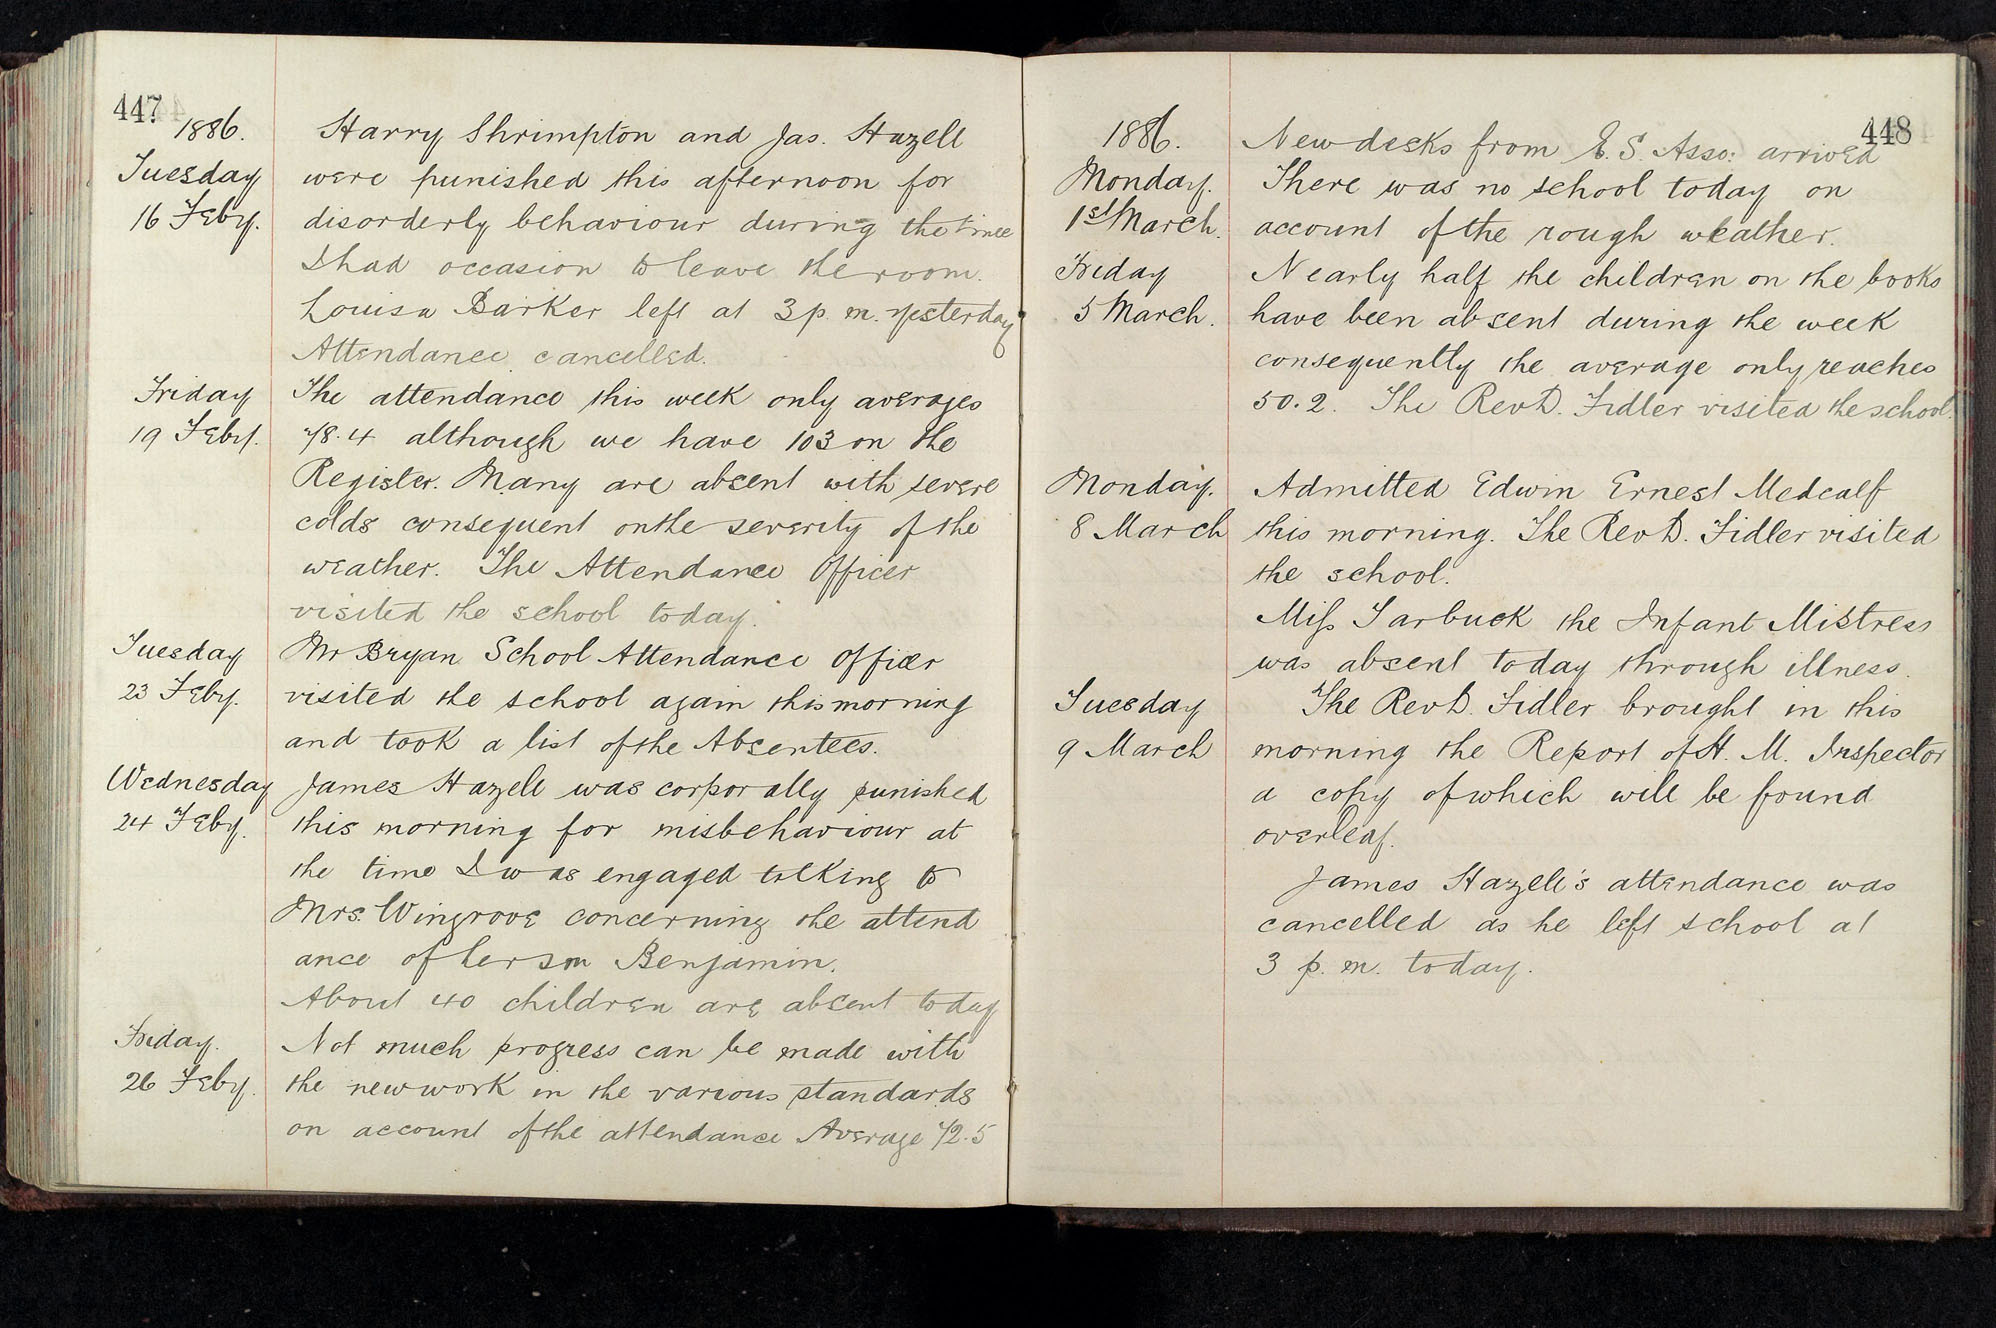 447
1886.
Harry Shrimpton and Jas. Hazell
Tuesday
were punished this afternoon for
16 Feby.
disorderly behaviour during the time
I had occasion to leave the room.
Louisa Barker left at 3 p.m. yesterday
Attendance cancelled.
Friday
The attendance this week only averages
19 Feby.
78.4 although we have 103 on the
Register. Many are absent with severe
colds consequent on the severity of the
weather. The Attendance Officer
visited the school today.
Tuesday
Mr Bryan School Attendance Officer
23 Feby.
visited the school again this morning
and took a list of the Absentees.
Wednesday
James Hazell was corporally punished
24 Feby.
this morning for misbehaviour at
the time I was engaged talking to
Mrs. Wingrove concerning the attend
ance of her son Benjamin.
About 40 children are absent today
Friday.
Not much progress can be made with
26 Feby.
the new work in the various standards
on account of the attendance Average 72.5
448
1886.
New desks from E. S. Asso: arrived
Monday.
There was no school today on
1st March.
account of the rough weather.
Friday
Nearly half the children on the books
5 March.
have been absent during the week
consequently the average only reaches
50.2. The Revd. Fidler visited the school.
Monday.
Admitted Edwin Ernest Medcalf
8 March
this morning. The Revd. Fidler visited
the school.
Miss Tarbuck the Infant Mistress
was absent today through illness.
Tuesday
The Revd. Fidler brought in this
9 March
morning the Report of H. M. Inspector
a copy of which will be found
overleaf.
James Hazell's attendance was
cancelled as he left school at
3 p.m. today.